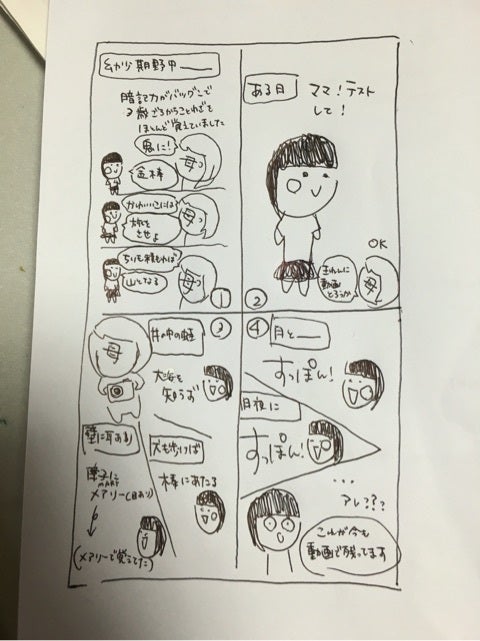 幼少期野中
暗記力がバツグンで
3歳ごろからことわざを
ほとんど覚えていました
鬼に!
母
金棒
かわいいこには
母
旅を
させよ
ちりも積もれば
母
山となる
①
ある日
ママ!テスト
して!
OK
動画
とろっか
母
②
井の中の蛙
③
母
大海を
知らず
壁に耳あり
障子に
メアリー(目あり)
(メアリーで覚えてた)
犬も歩けば
棒にあたる
④
月と
すっぽん!
月夜に
すっぽん!
...
アレ???
これが今も
動画で残ってます